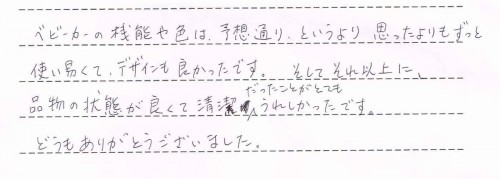 ベビーカーの機能や色は、予想通り、というより思ったよりもずっと
使い易くて、デザインも良かったです。 そしてそれ以上に、
品物の状態が良くて清潔だったことがとてもうれしかったです。
どうもありがとうございました。